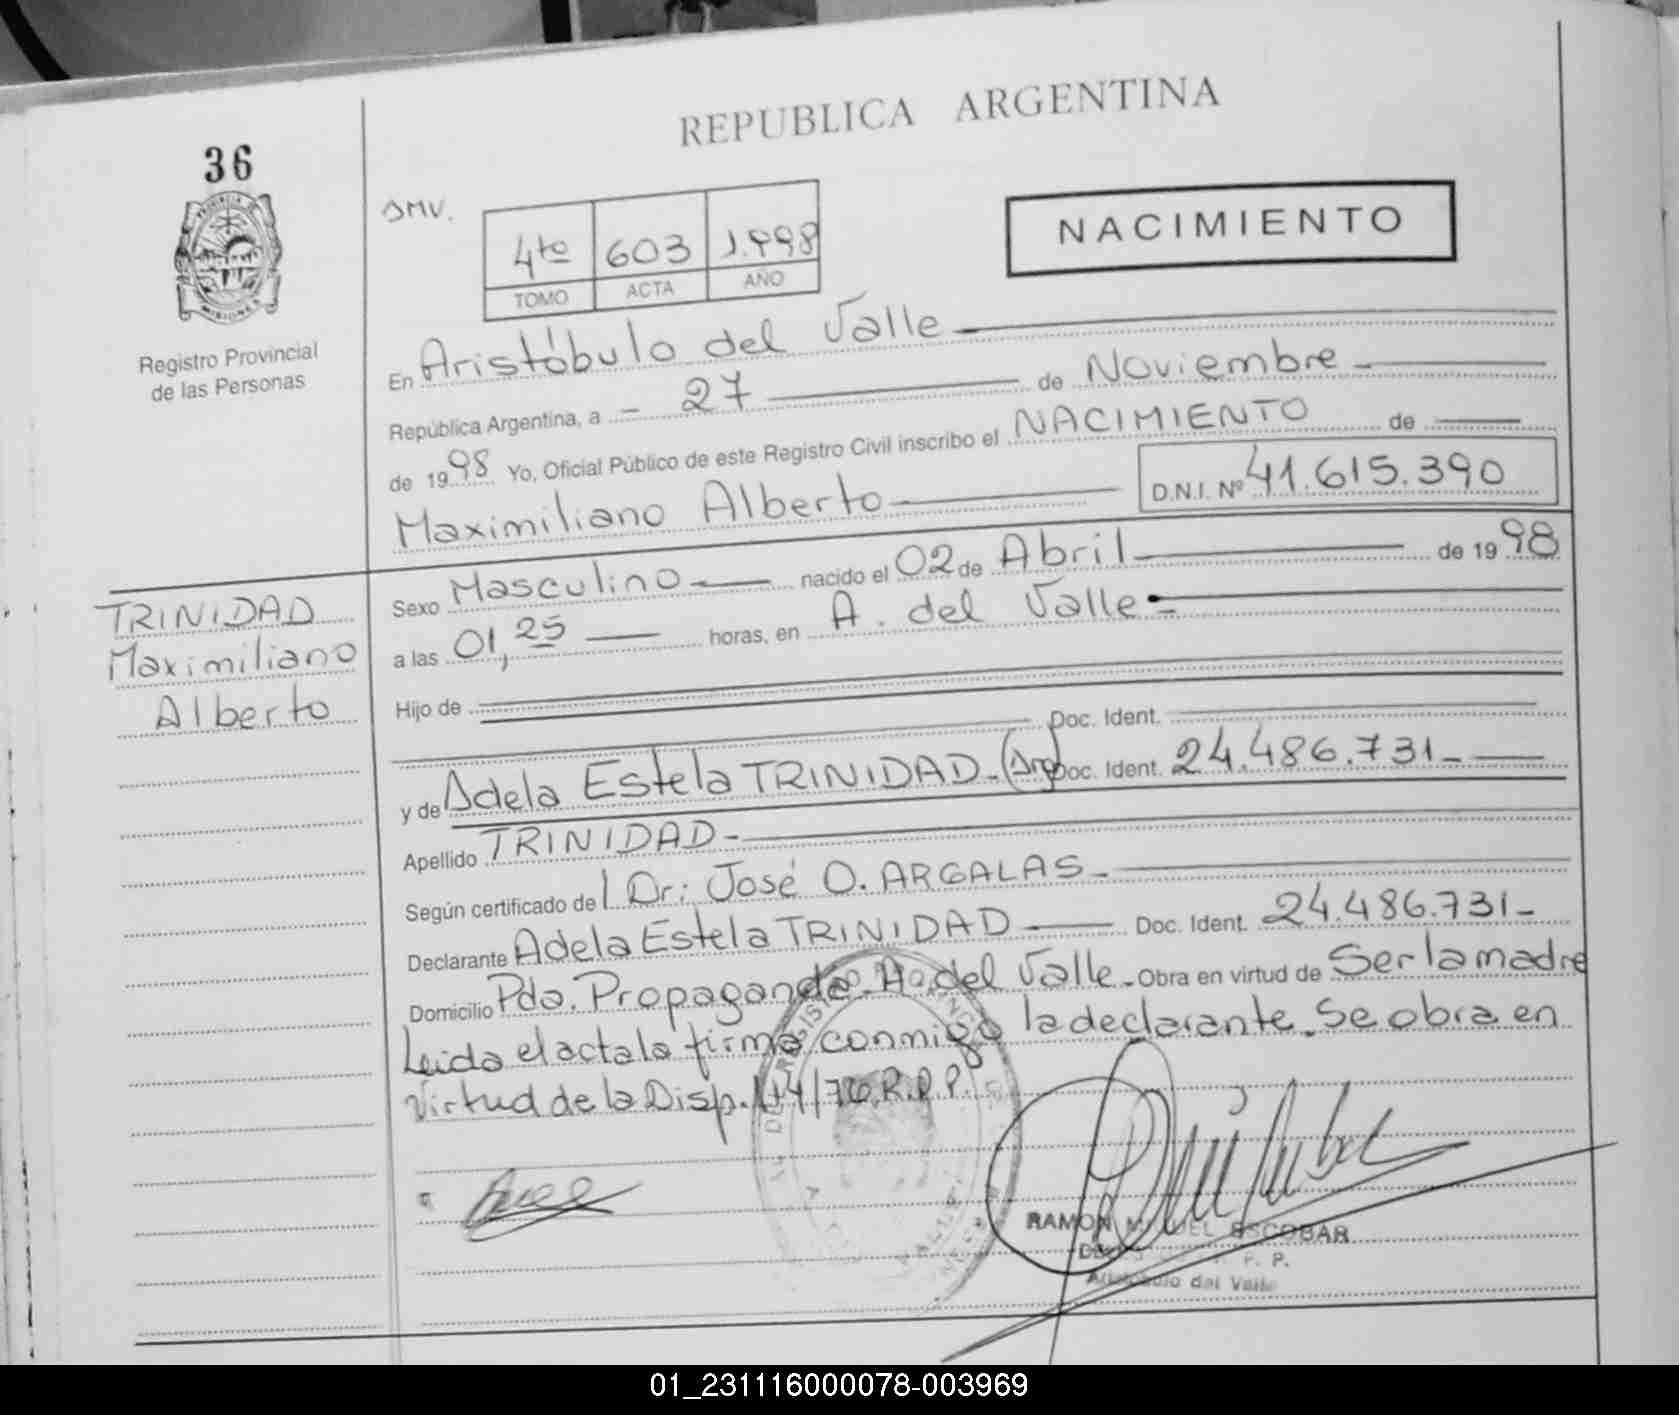 REPUBLICA ARGENTINA
36
PROVINCIA DE
MISIONES
Registro Provincial
de las Personas
NACIMIENTO
4to 603 1.998
TOMO ACTA AÑO
En Aristóbulo del Valle
República Argentina, a - 27 de Noviembre
de 1998 Yo, Oficial Público de este Registro Civil inscribo el NACIMIENTO de
Maximiliano Alberto D.N.I. Nº 41.615.390
TRINIDAD
Maximiliano
Alberto
Sexo Masculino nacido el 02 de Abril de 1998
a las 01,25 horas, en A. del Valle
Hijo de
Doc. Ident.
y de Adela Estela TRINIDAD-(Arg) Doc. Ident. 24.486.731-
Apellido TRINIDAD-
Según certificado del Dr: José O. ARGALAS-
Declarante Adela Estela TRINIDAD Doc. Ident. 24.486.731-
Domicilio Pda. Propaganda-A. del Valle- Obra en virtud de Ser la madre
Leida el acta la firma conmigo la declarante. Se obra en
virtud de la Disp. R.P.P.
RAMON MIGUEL ESCOBAR
Aristóbulo del Valle
01_231116000078-003969